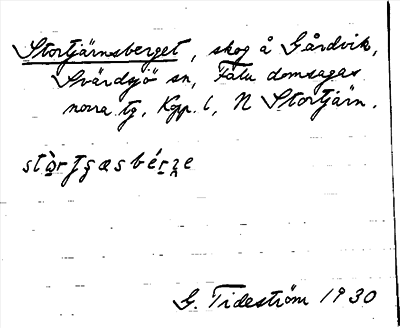 Stortjärnsberget, skog å Gårdvik,
Svärdsjö sn, Falu domsagas
norra tg, Kpp. l, N Stortjärn.
G. Tideström 1930